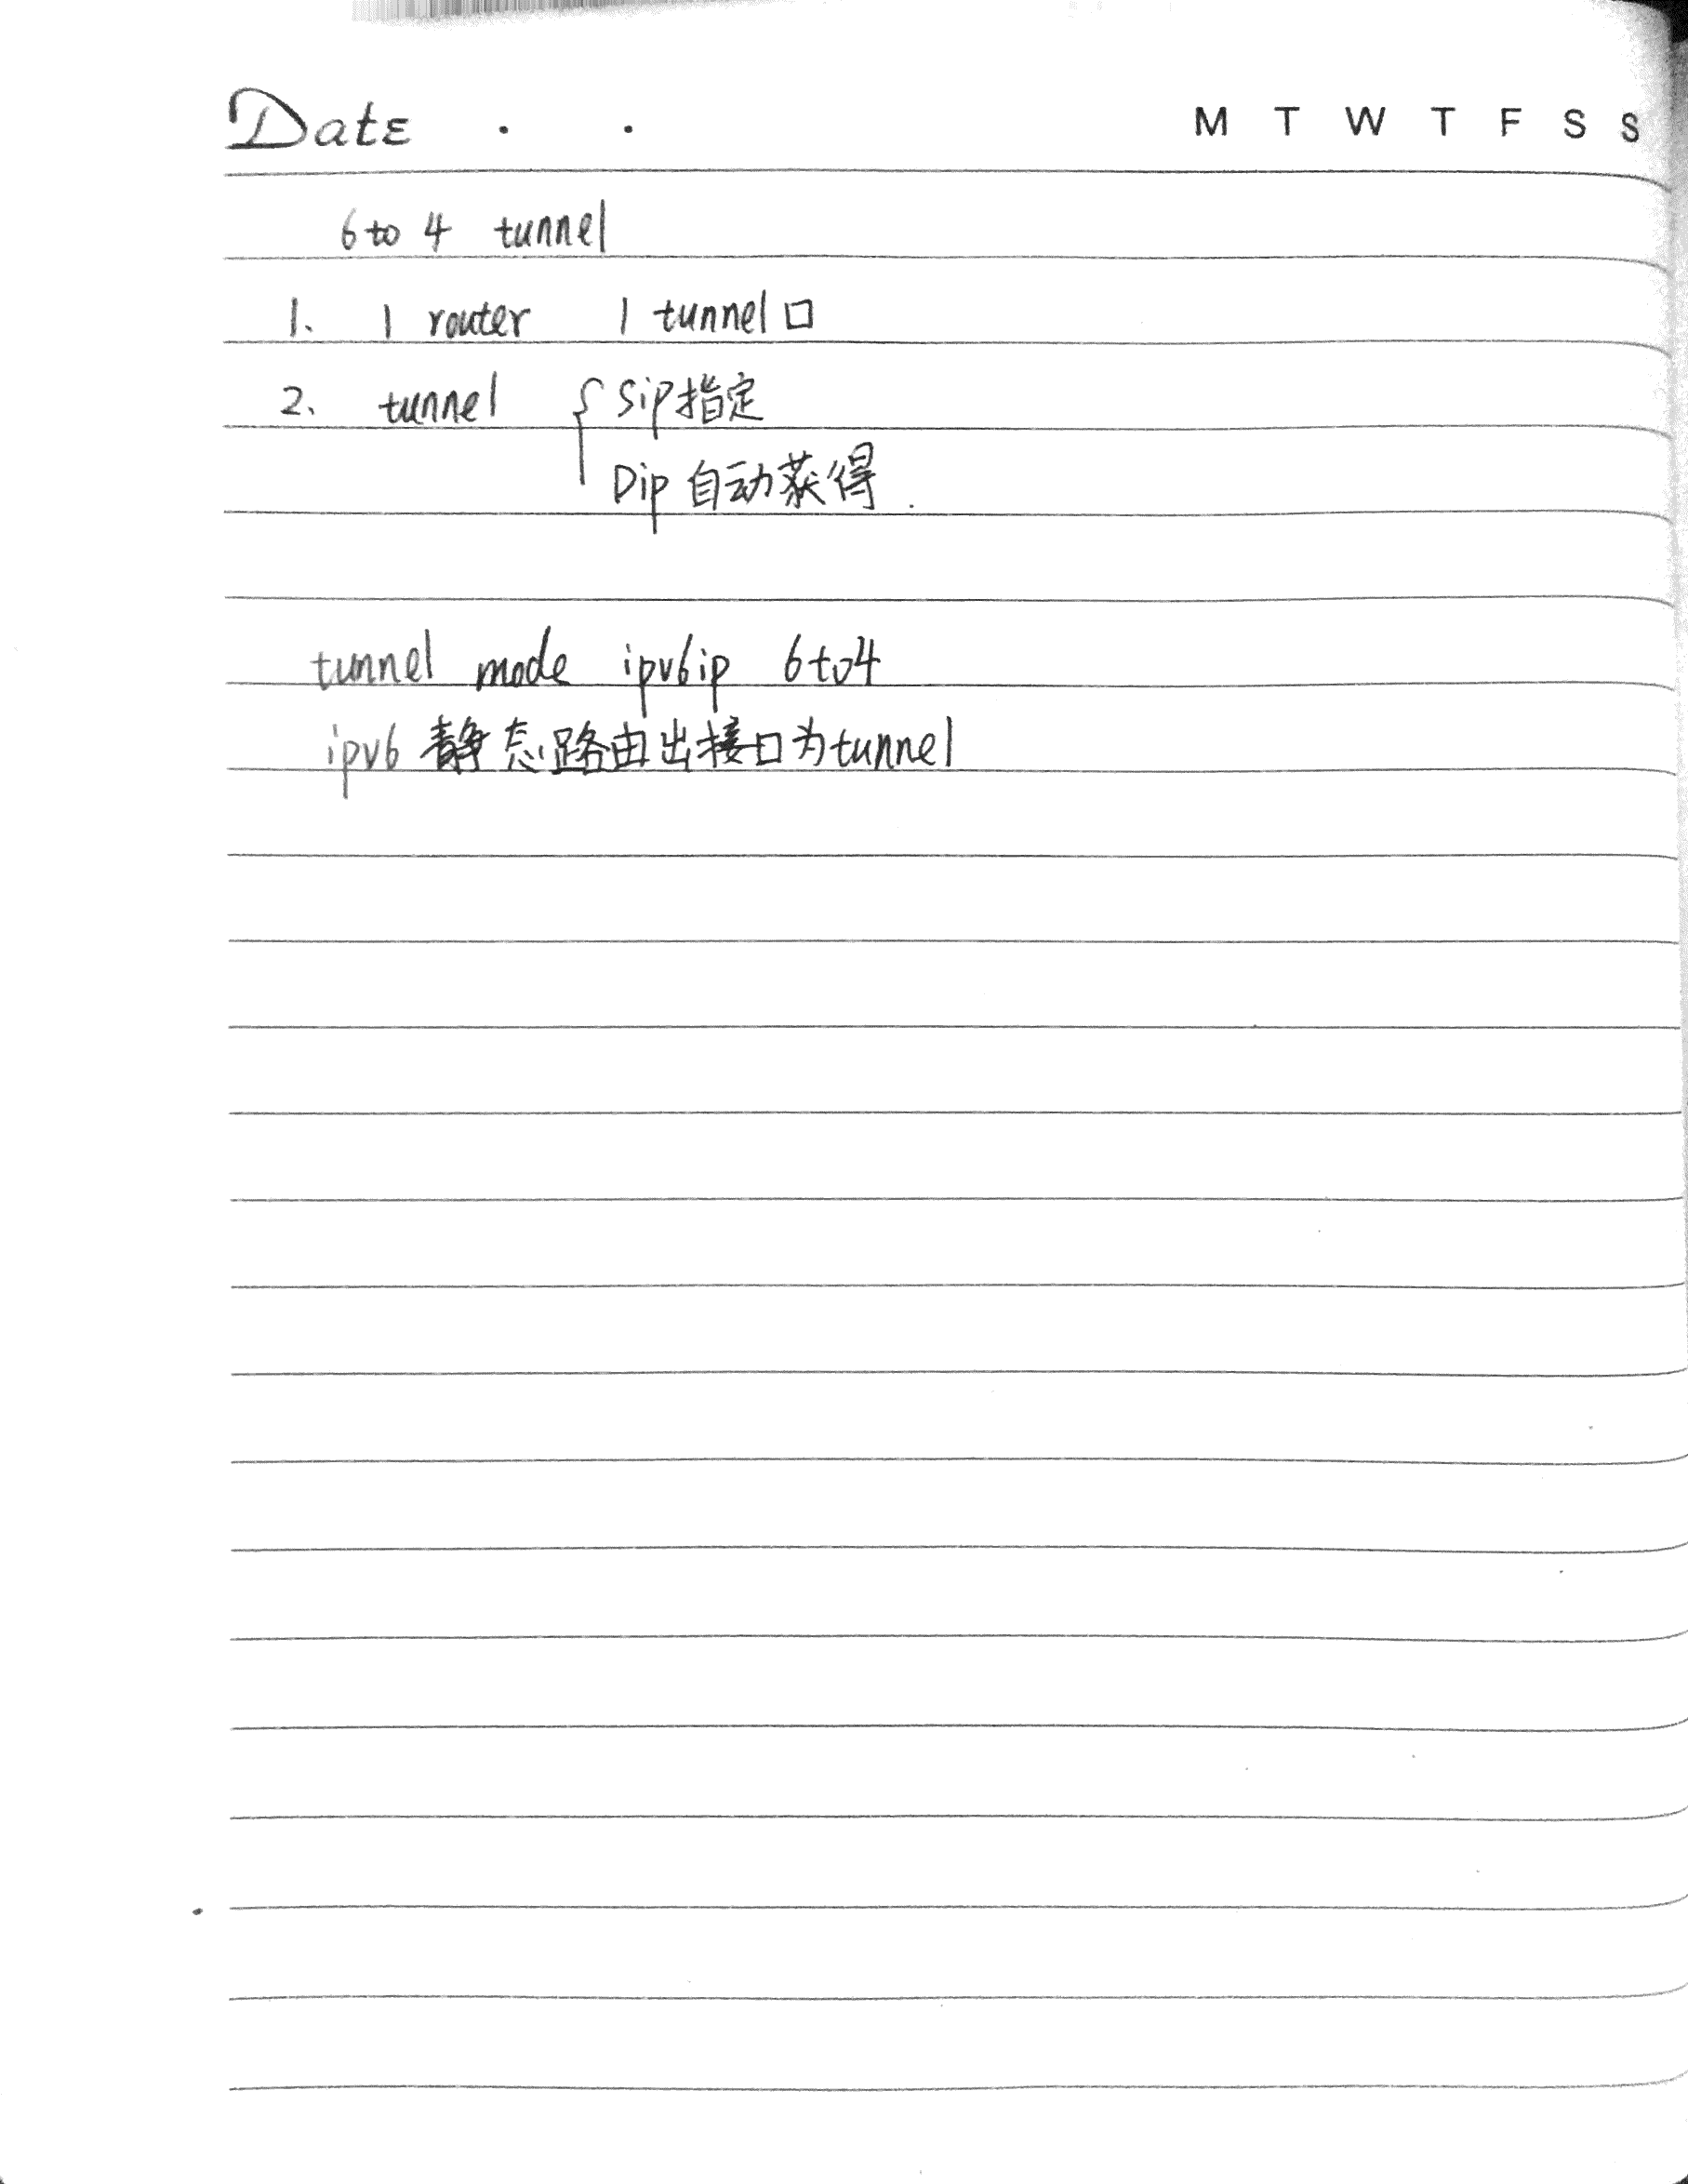 Date . . M T W T F S S
6to4 tunnel
1、 1 router 1 tunnel口
2、 tunnel { Sip指定
Dip 自动获得.
tunnel mode ipv6ip 6to4
ipv6 静态路由出接口为tunnel